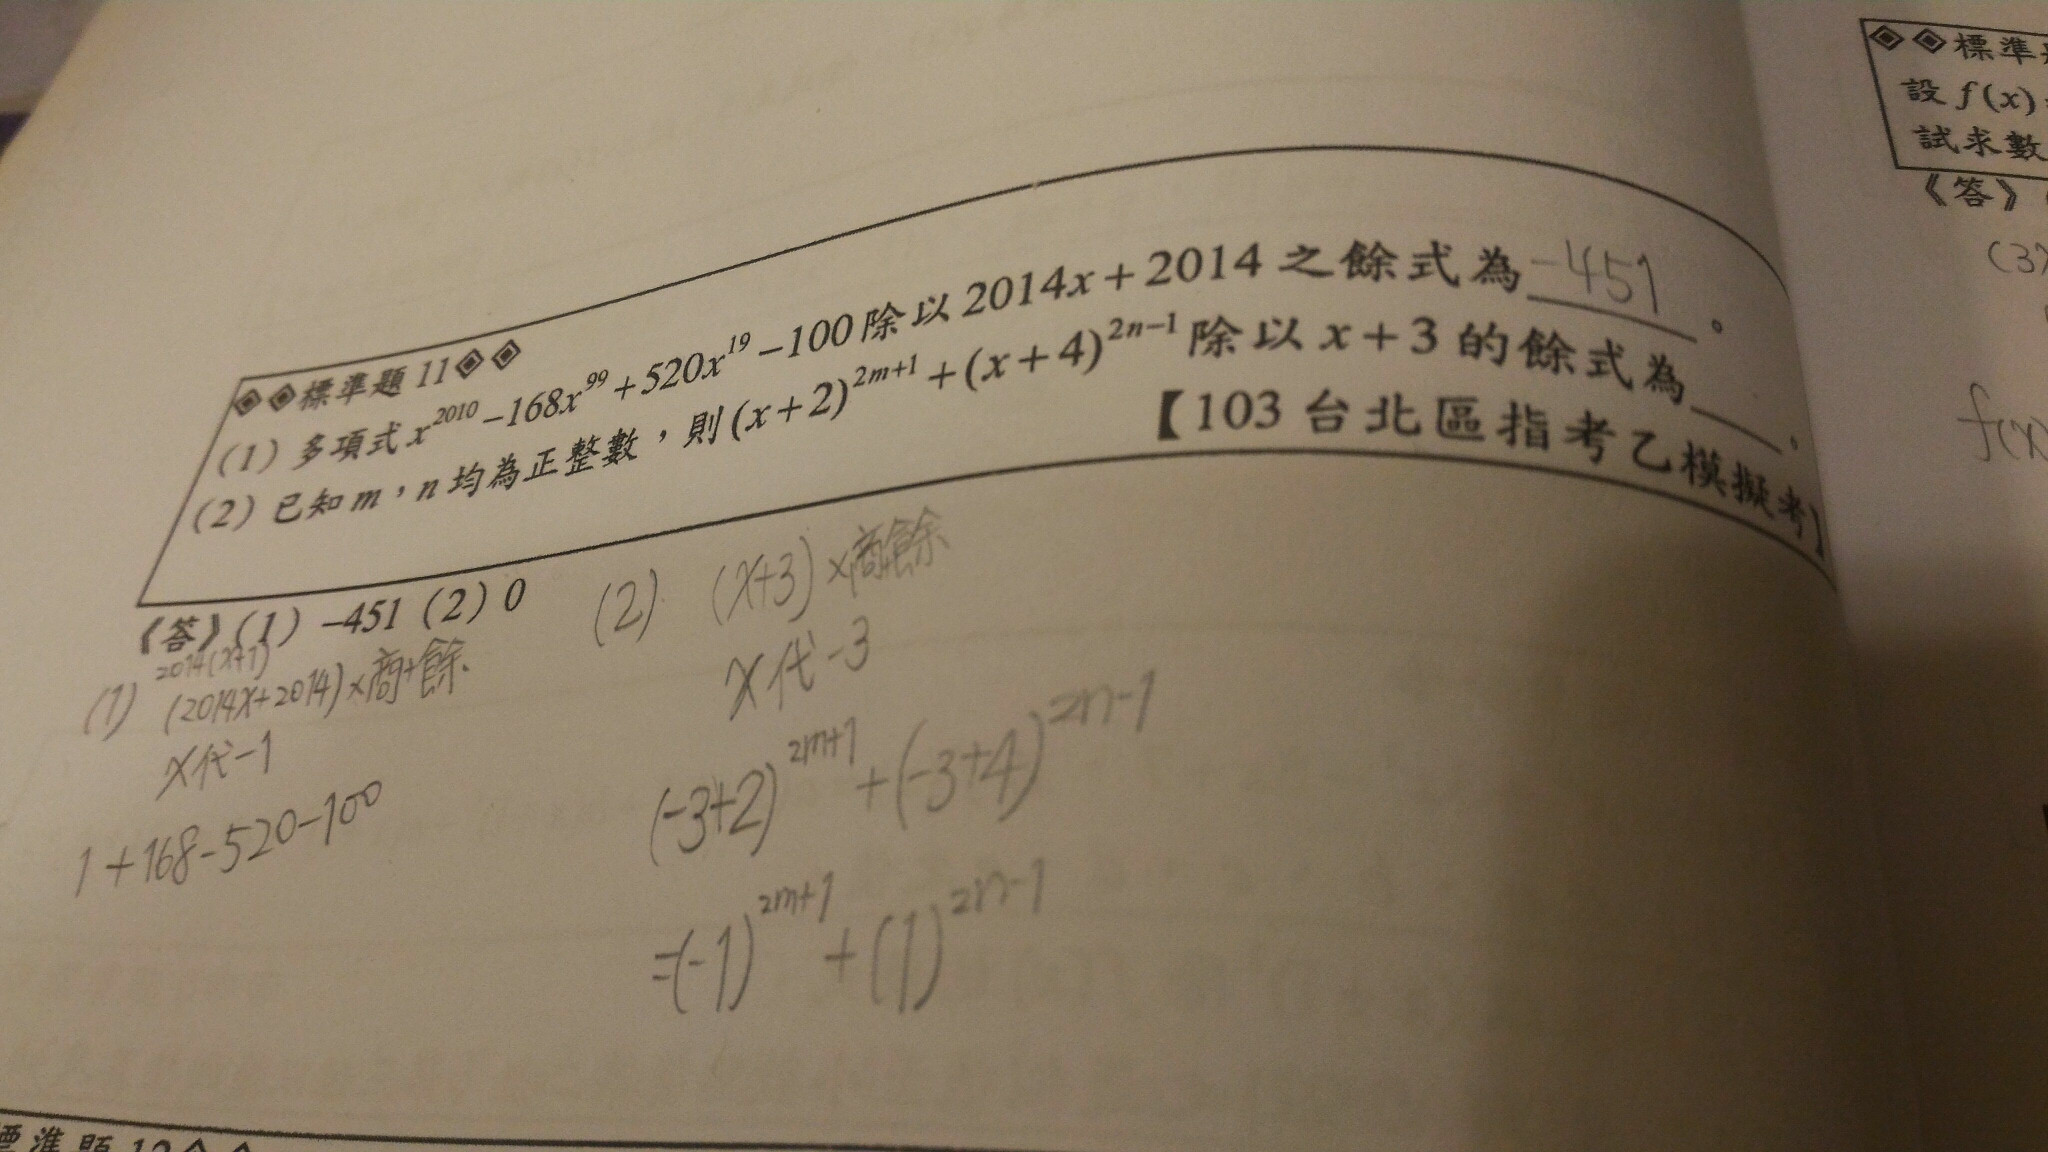 ◈◈標準題 11◈◈
(1) 多項式 x^2010 −168x^99 + 520x^19 −100 除以 2014x + 2014 之餘式為 -451 。
(2) 已知 m，n 均為正整數，則 (x+2)^2m+1 + (x+4)^2n−1 除以 x+3 的餘式為____。
【103 台北區指考乙模擬考】
《答》(1) −451 (2) 0
2014(x+1)
(1) (2014x+2014)×商+餘
x代-1
1+168-520-100
(2) (x+3)×商+餘
x代-3
(-3+2)^2m+1 + (-3+4)^2n-1
=(-1)^2m+1 + (1)^2n-1
◈◈標準
設 f(x)
試求數
《答》(
(3
f(x)
標準題 12